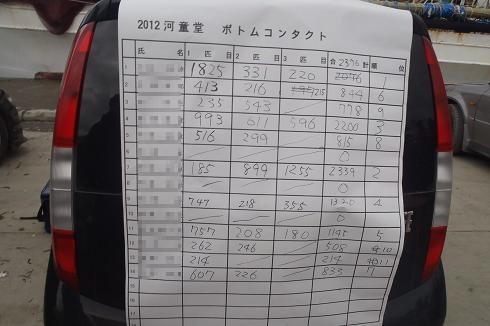 2012河童堂 ボトムコンタクト
氏 名 1 匹 目 2 匹 目 3 匹 目 合 2376 計 順 位
1 1825 331 220 2046 1
2 413 216 215 844 6
3 235 543 778 9
4 993 611 596 2200 3
5 516 299 815 8
6 0
7 185 899 1255 2339 2
8 0
9 747 218 355 1320 4
10 0
11 757 208 180 1145 5
12 262 246 508 10
13 214 214 11
14 607 226 833 7